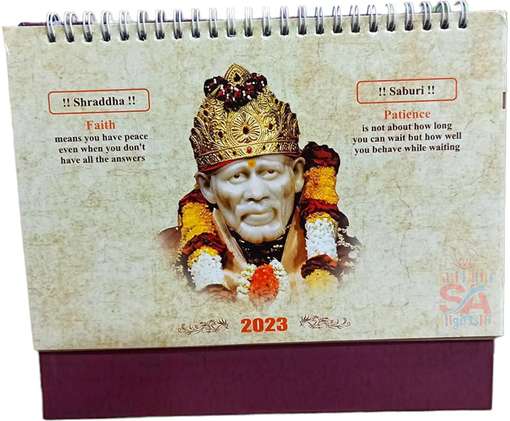 !! Shraddha !!
Faith
means you have peace
even when you don't
have all the answers
!! Saburi !!
Patience
is not about how long
you can wait but how well
you behave while waiting
2023
SA